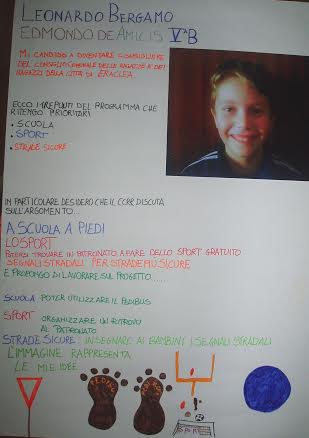 LEONARDO BERGAMO
EDMONDO DE AMICIS VªB
MI CANDIDO A DIVENTARE CONSIGLIERE
DEL CONSIGLIO COMUNALE DELLE RAGAZZE E DEI
RAGAZZI DELLA CITTÀ DI ERACLEA.
ECCO I 3 PUNTI DEL PROGRAMMA CHE
RITENGO PRIORITARI
• SCUOLA
• SPORT
• STRADE SICURE
IN PARTICOLARE DESIDERO CHE IL CCRR DISCUTA
SULL'ARGOMENTO...
A SCUOLA A PIEDI
LO SPORT
POTERSI TROVARE IN PATRONATO A FARE DELLO SPORT GRATUITO
SEGNALI STRADALI PER STRADE PIÙ SICURE
E PROPONGO DI LAVORARE SUL PROGETTO......
SCUOLA POTER UTILIZZARE IL PEDIBUS
SPORT ORGANIZZARE UN RITROVO
AL PATRONATO
STRADE SICURE: INSEGNARE AI BAMBINI I SEGNALI STRADALI
L'IMMAGINE RAPPRESENTA
LE MIE IDEE